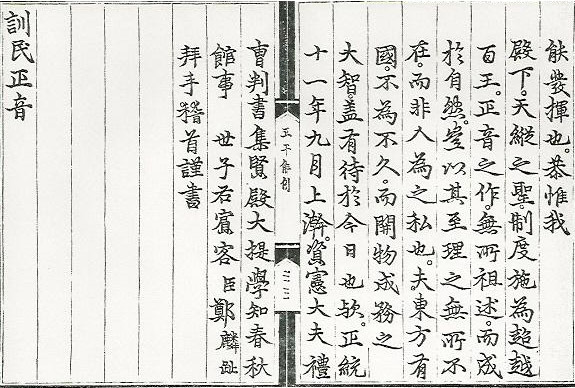 能發揮也。恭惟我
殿下。天縱之聖。制度施為超越
百王。正音之作。無所祖述。而成
於自然。豈以其至理之無所不
在。而非人為之私也。夫東方有
國。不為不久。而開物成務之
大智。盖有待於今日也欤。正統
十一年九月上澣。資憲大夫禮
曹判書集賢殿大提學知春秋
館事 世子右賓客 臣鄭麟趾
拜手稽首謹書
訓民正音